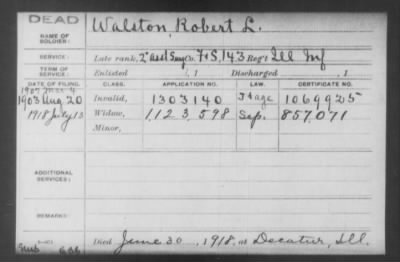 DEAD
NAME OF SOLDIER: Walston, Robert L.
SERVICE: Late rank, 2" asst Surg Co. F+S, 143 Reg't Ill Inf
TERM OF SERVICE: Enlisted , 1 Discharged , 1
DATE OF FILING. CLASS. APPLICATION NO. LAW. CERTIFICATE NO.
1907 Mar 4
1903 Aug. 20 Invalid, 1303140 age 1069925
1918 July 13 Widow, 1,123,598 Sep. 857,071
Minor,
ADDITIONAL SERVICES:
REMARKS:
Died June 30, 1918, at Decatur, Ill.